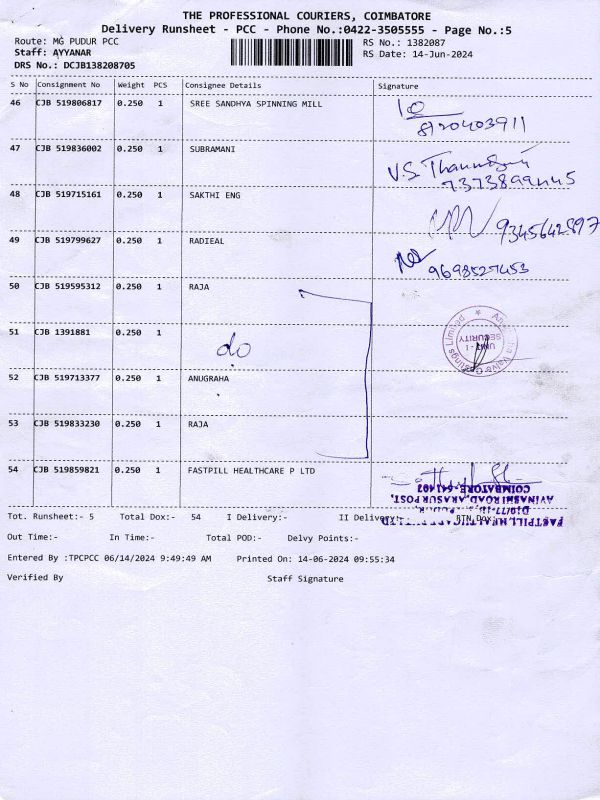 THE PROFESSIONAL COURIERS, COIMBATORE
Delivery Runsheet - PCC - Phone No.:0422-3505555 - Page No.:5
Route: MG PUDUR PCC RS No.: 1382087
Staff: AYYANAR RS Date: 14-Jun-2024
DRS No.: DCJB138208705
S No Consignment No Weight PCS Consignee Details Signature
46 CJB 519806817 0.250 1 SREE SANDHYA SPINNING MILL
8120403911
47 CJB 519836002 0.250 1 SUBRAMANI
V.S.
48 CJB 519715161 0.250 1 SAKTHI ENG
9345642897
49 CJB 519799627 0.250 1 RADIEAL
9698527453
50 CJB 519595312 0.250 1 RAJA
51 CJB 1391881 0.250 1
do
52 CJB 519713377 0.250 1 ANUGRAHA
53 CJB 519833230 0.250 1 RAJA
54 CJB 519859821 0.250 1 FASTPILL HEALTHCARE P LTD
UNIT - 1
SECURITY
FASTPILL
AVINASHI ROAD, ARASUR POST,
COIMBATORE-641407
Tot. Runsheet:- 5 Total Dox:- 54 I Delivery:- II Delivery:- RTN Dox:-
Out Time:- In Time:- Total POD:- Delvy Points:-
Entered By :TPCPCC 06/14/2024 9:49:49 AM Printed On: 14-06-2024 09:55:34
Verified By Staff Signature